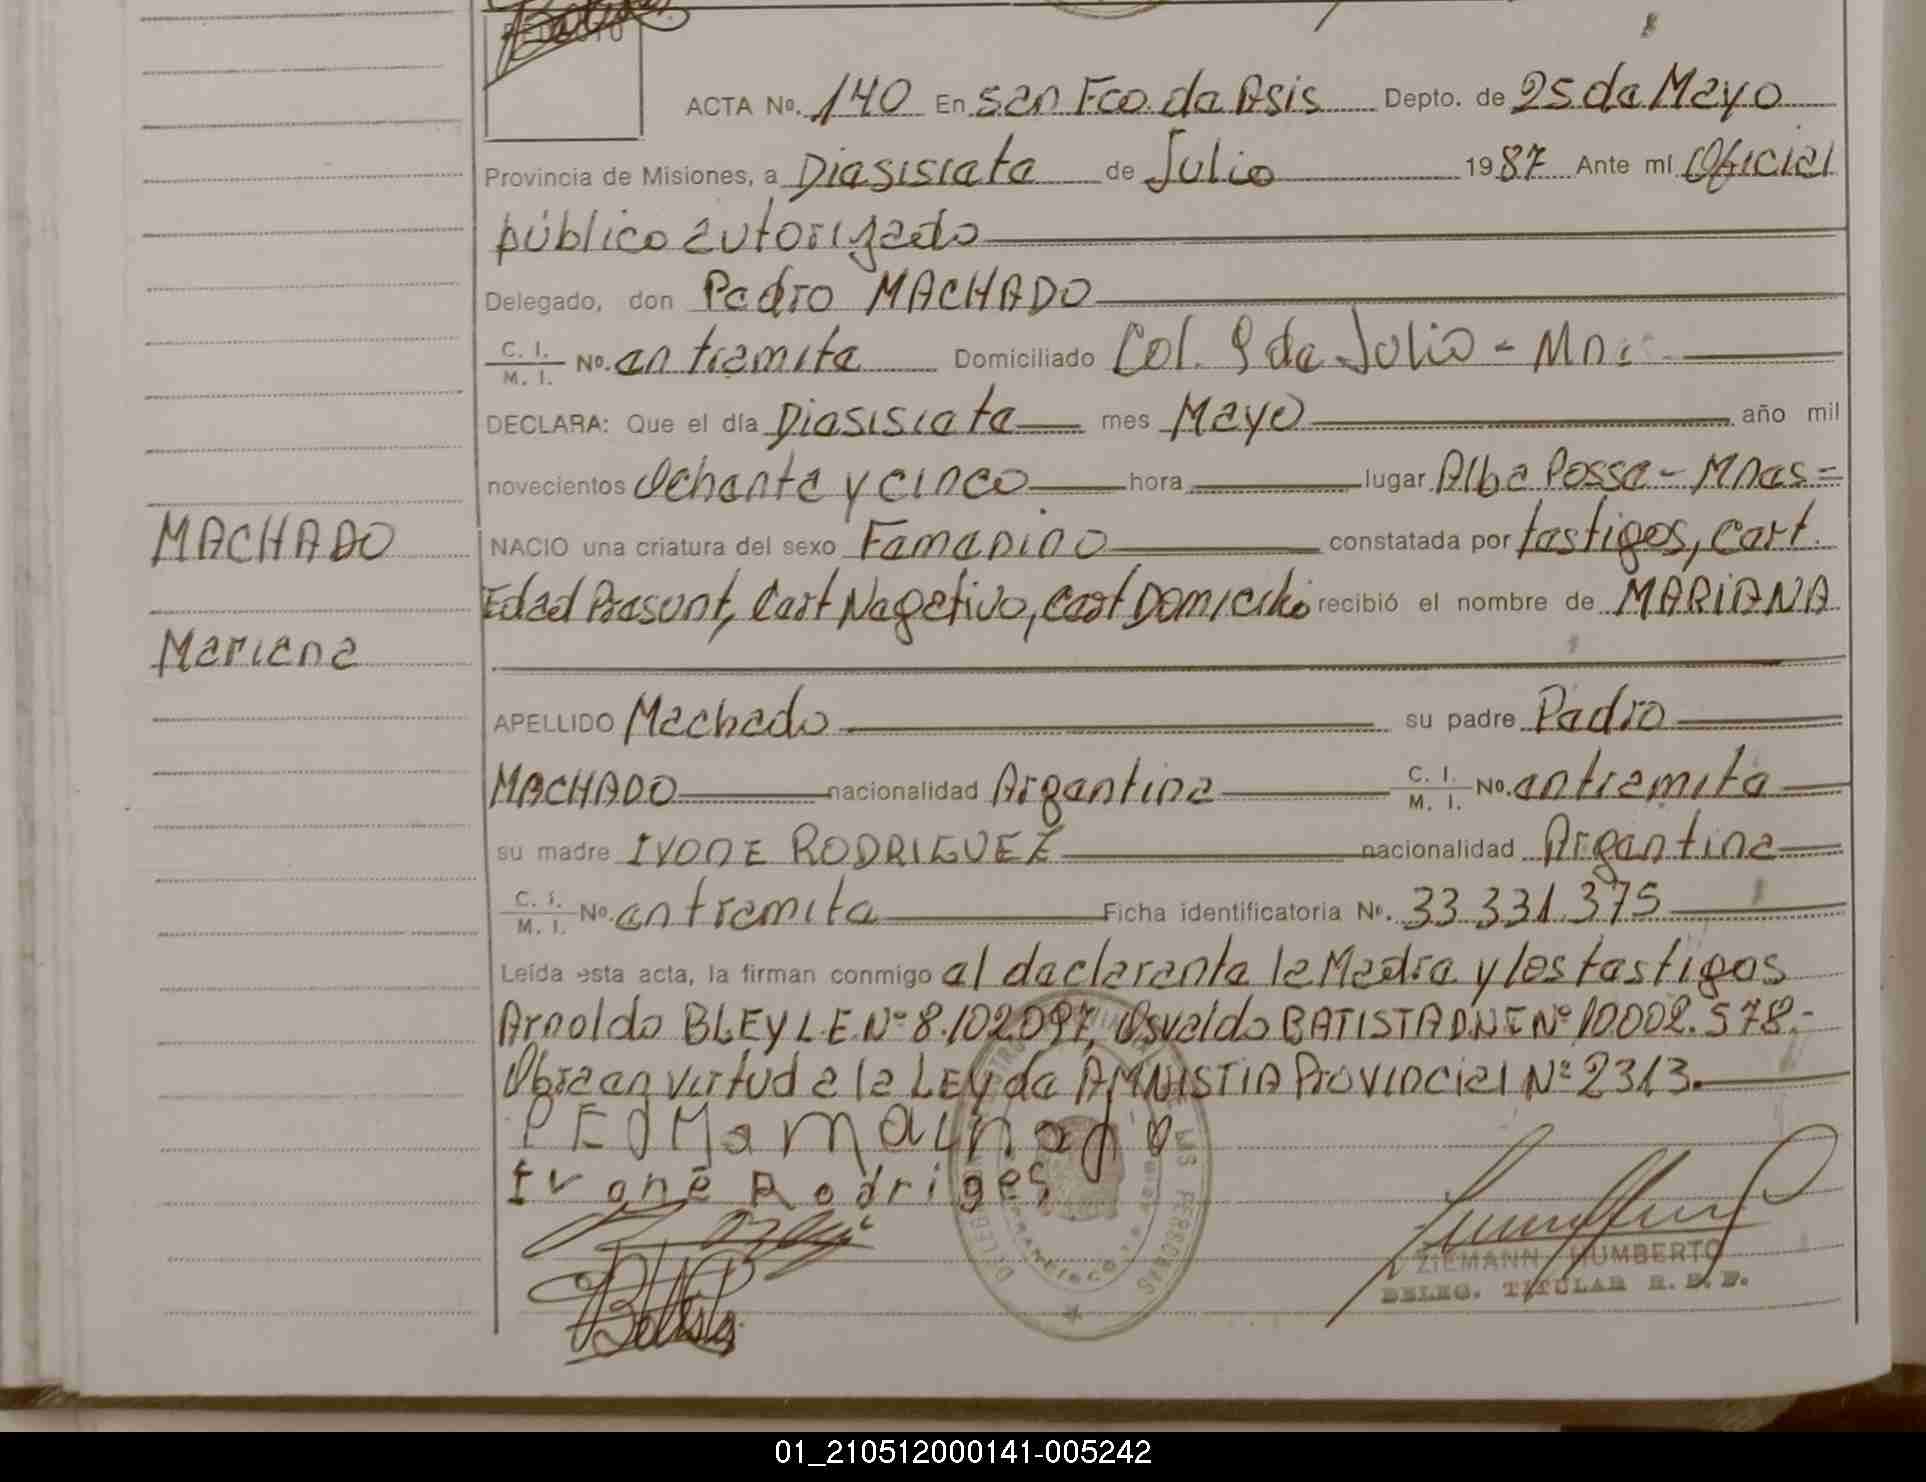 ACTA No. 140 En San Fco. de Asis Depto. de 25 de Mayo
Provincia de Misiones, a Diesisiete de Julio 1987 Ante mí Oficial
público autorizado
Delegado, don Pedro MACHADO
C. I. / M. I. No. en tramite Domiciliado Col. 9 de Julio - Mnes
DECLARA: Que el día Diesisiete mes Mayo año mil
novecientos Ochenta y cinco hora lugar Alba Posse - Mnes =
NACIO una criatura del sexo Femenino constatada por testigos, Cert.
MACHADO
Edad Presunt, Cert Negativo, Cert Domicilio recibió el nombre de MARIANA
Mariana
APELLIDO Machado su padre Pedro
MACHADO nacionalidad Argentina C. I. / M. I. No. en tramite
su madre IVONE RODRIGUEZ nacionalidad Argentina
C. I. / M. I. No. en tramite Ficha identificatoria No. 33.331.375
Leída esta acta, la firman conmigo el declarante la Madre y los testigos
Arnoldo BLEY L.E. Nº 8.102.097, Osvaldo BATISTA DNI Nº 10002.578.-
Obra en virtud a la LEY de AMNISTIA Provincial Nº 2313.
Ivone Rodriges
ZIEMANN HUMBERTO
DELEG. TITULAR R. P. P.
01_210512000141-005242